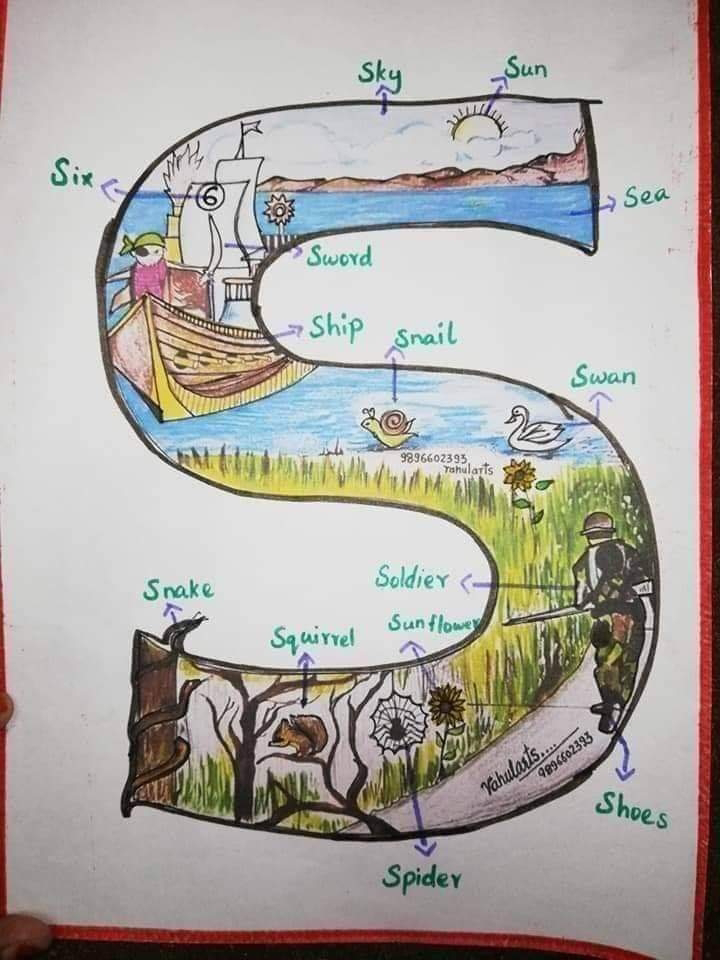 Sky
Sun
Six
6
Sea
Sword
Ship
Snail
Swan
9896602393
rahularts
Soldier
Snake
Squirrel
Sunflower
rahularts....
9896602393
Shoes
Spider